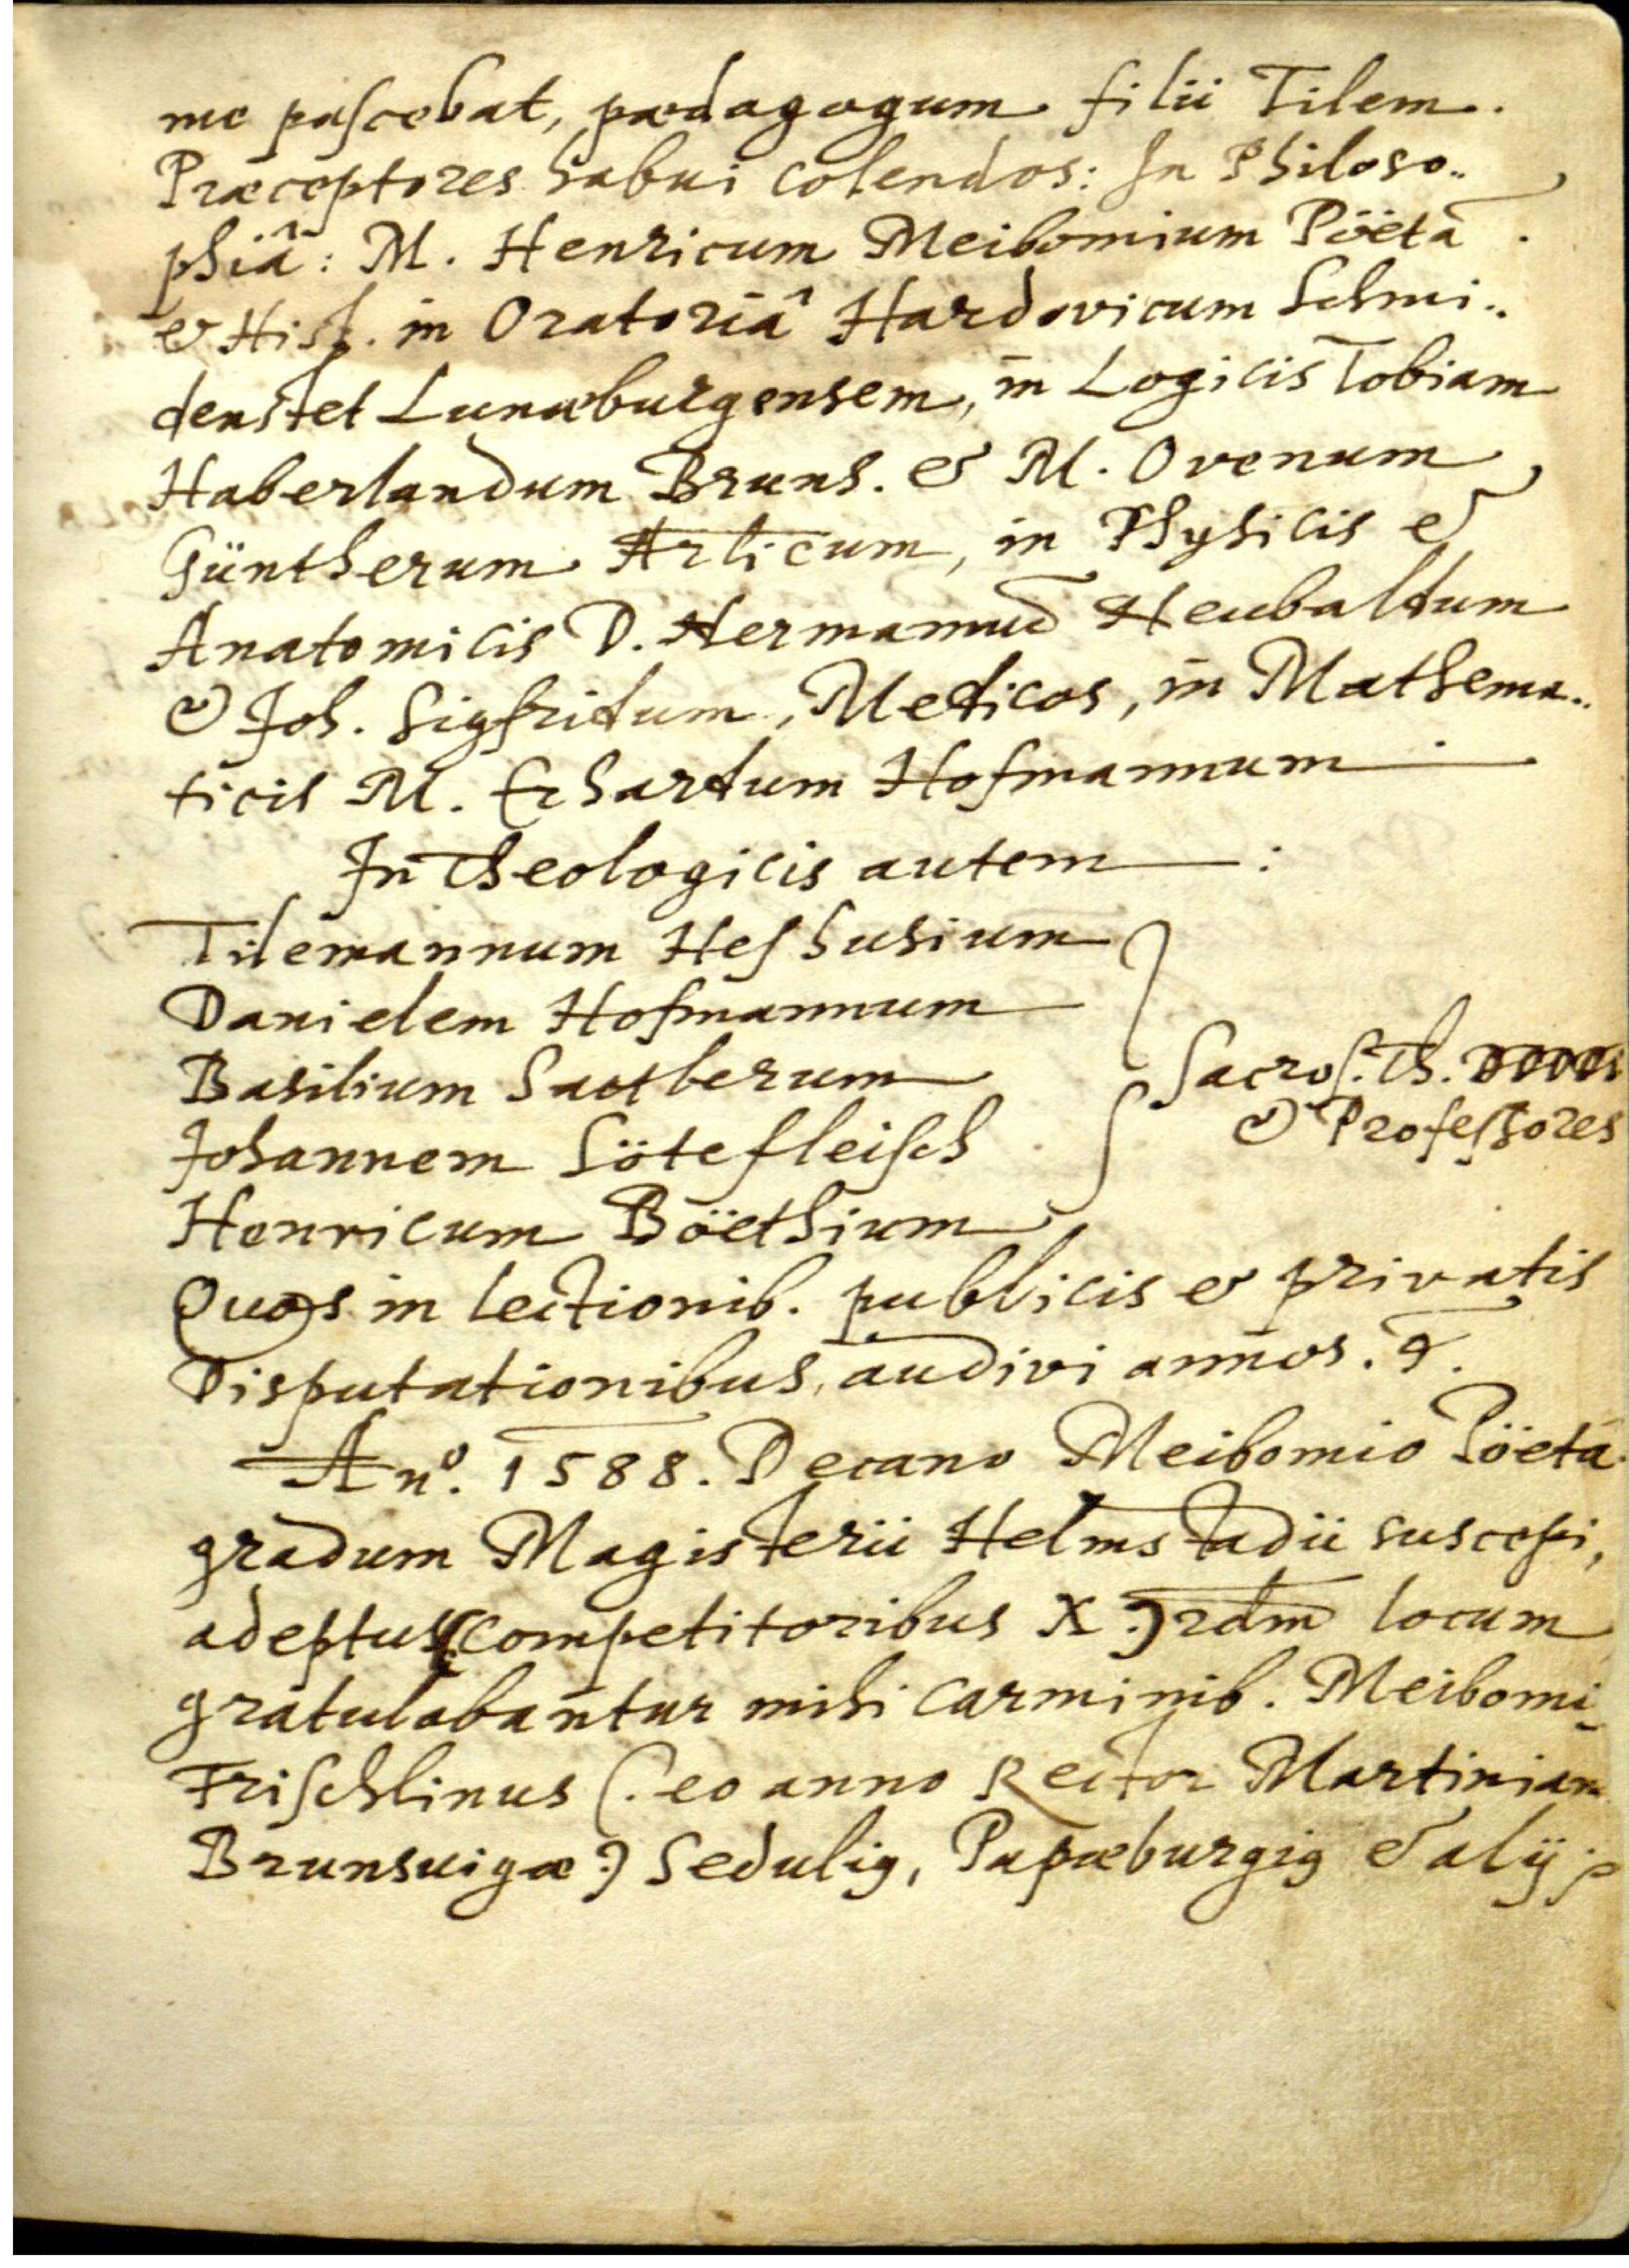 me pascebat, pædagogum filii Tilem.
Præceptores habui colendos: In Philoso..
phiâ: M. Henricum Meibomium Pöetā.
& Hist. in Oratoriâ Hardovicum Schmi..
denstet Lunæburgensem, in Logicis Tobiam
Haberlandum Bruns. & M. Ovenum
Güntherum, in Physicis &
Anatomicis D. Hermannum Neubaldum
& Joh. Sigfridum, Medicos, in Mathema..
ticis M. Erhardum Hofmannum
In Theologicis autem :
Tilemannum Heshusium
Danielem Hofmannum
Basilium Sattlerum
Johannem Sötefleisch
Henricum Böethium
Sacros. Th. DDDDD
& Professores
Quos in lectionib. publicis & privatis
Disputationibus, audivi annos.
Anº. 1588. Decano Meibomio Pöetā
gradum Magisterii Helmstadii suscepi,
adeptus (competitoribus X) locum
gratulabantur mihi carminib. Meibomi
Frischlinus (. eo anno Rector Martinian
Brunsvigæ.) Sedulig, Papæburgig & alij